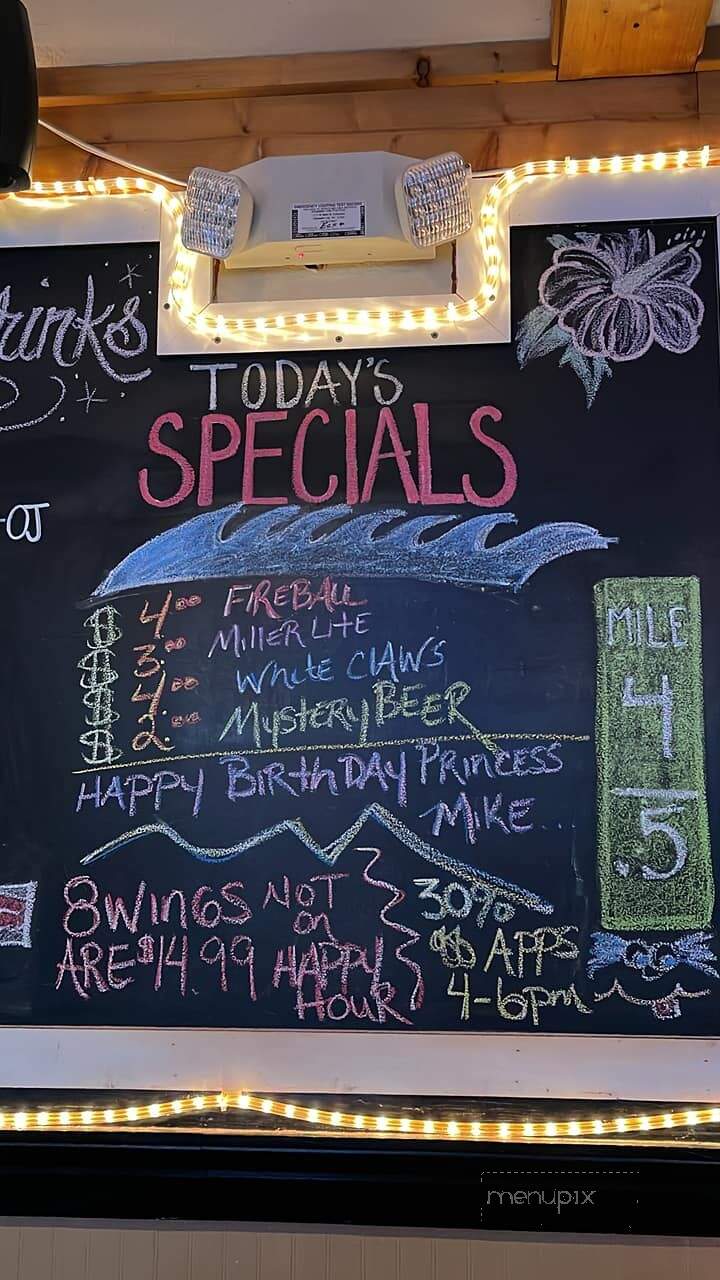 rinks
TODAY'S
SPECIALS
OJ
$ 4.00 FIREBALL
$ 3.00 MILLER LITE
$ 4.00 White CLAWS
$ 2.00 MysteryBEER
HAPPY BirthDAY PRINCESS
MIKE...
MILE
4
.5
8 WINGS NOT
on
ARE $14.99 HAPPY
HOUR
30%
off APPS
4-6pm
menupix